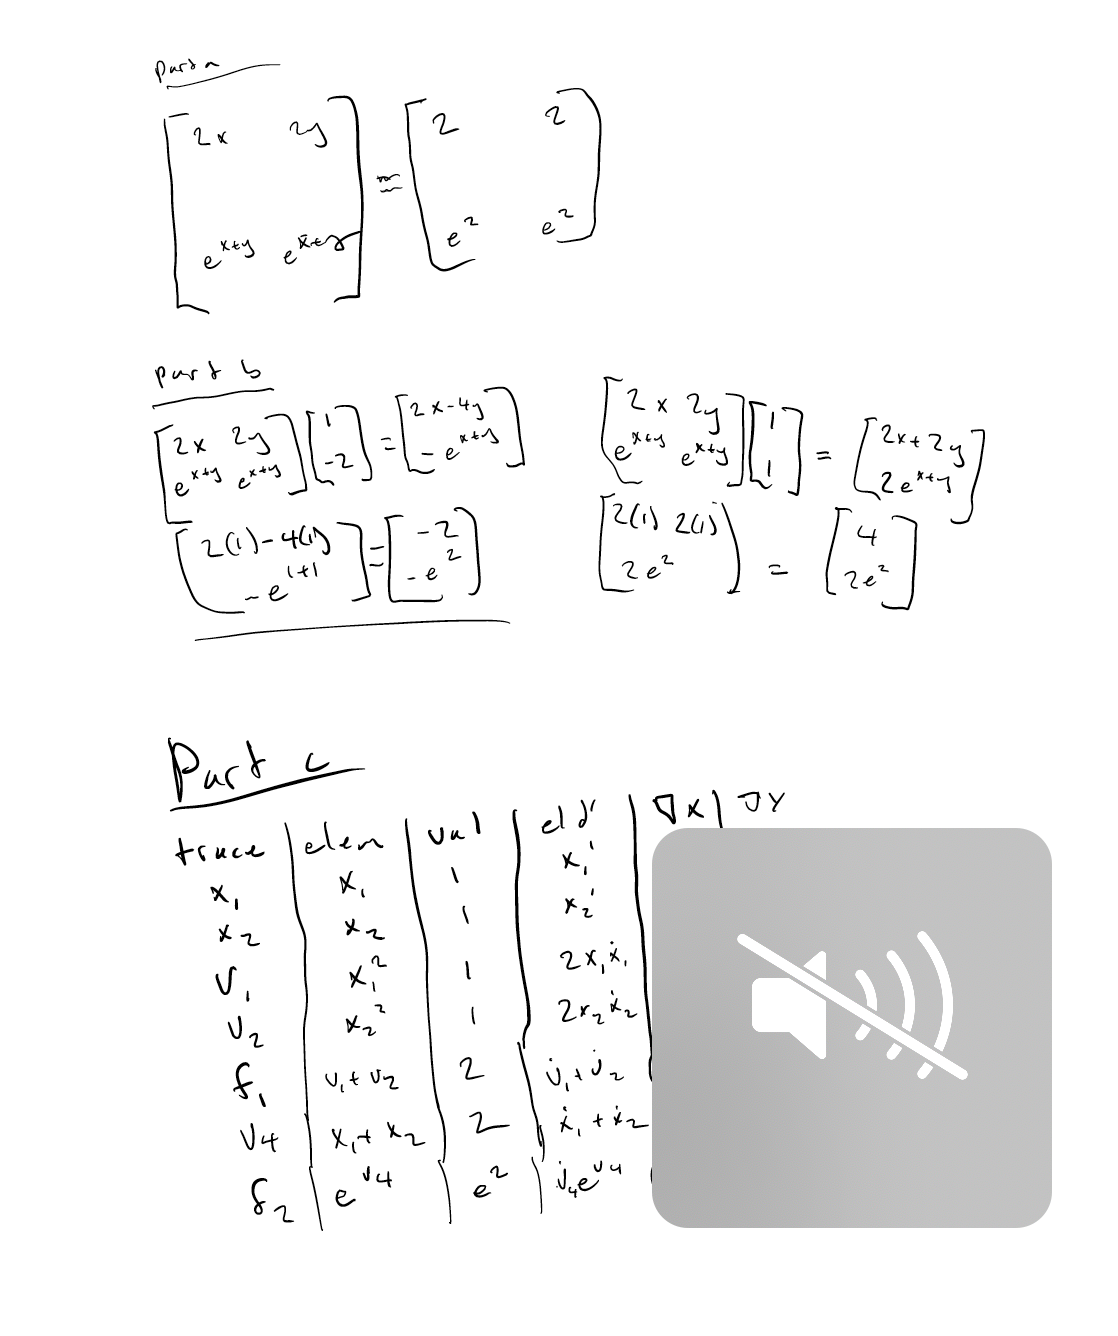 Part a
[2x 2y; e^{x+y} e^{x+y}] = [2 2; e^2 e^2]
Part b
[2x 2y; e^{x+y} e^{x+y}] [1; -2] = [2x-4y; -e^{x+y}]
[2(1)-4(1); -e^{1+1}] = [-2; -e^2]
[2x 2y; e^{x+y} e^{x+y}] [1; 1] = [2x+2y; 2e^{x+y}]
[2(1) 2(1); 2e^2] = [4; 2e^2]
Part c
trace | elem | val | el d' | ∇x | ∇y
x₁ | x₁ | 1 | x₁'
x₂ | x₂ | 1 | x₂'
v₁ | x₁² | 1 | 2x₁ẋ₁
v₂ | x₂² | 1 | 2x₂ẋ₂
f₁ | v₁+v₂ | 2 | v̇₁+v̇₂
v₄ | x₁+x₂ | 2 | ẋ₁+ẋ₂
f₂ | e^{v₄} | e² | v̇₄e^{v₄}